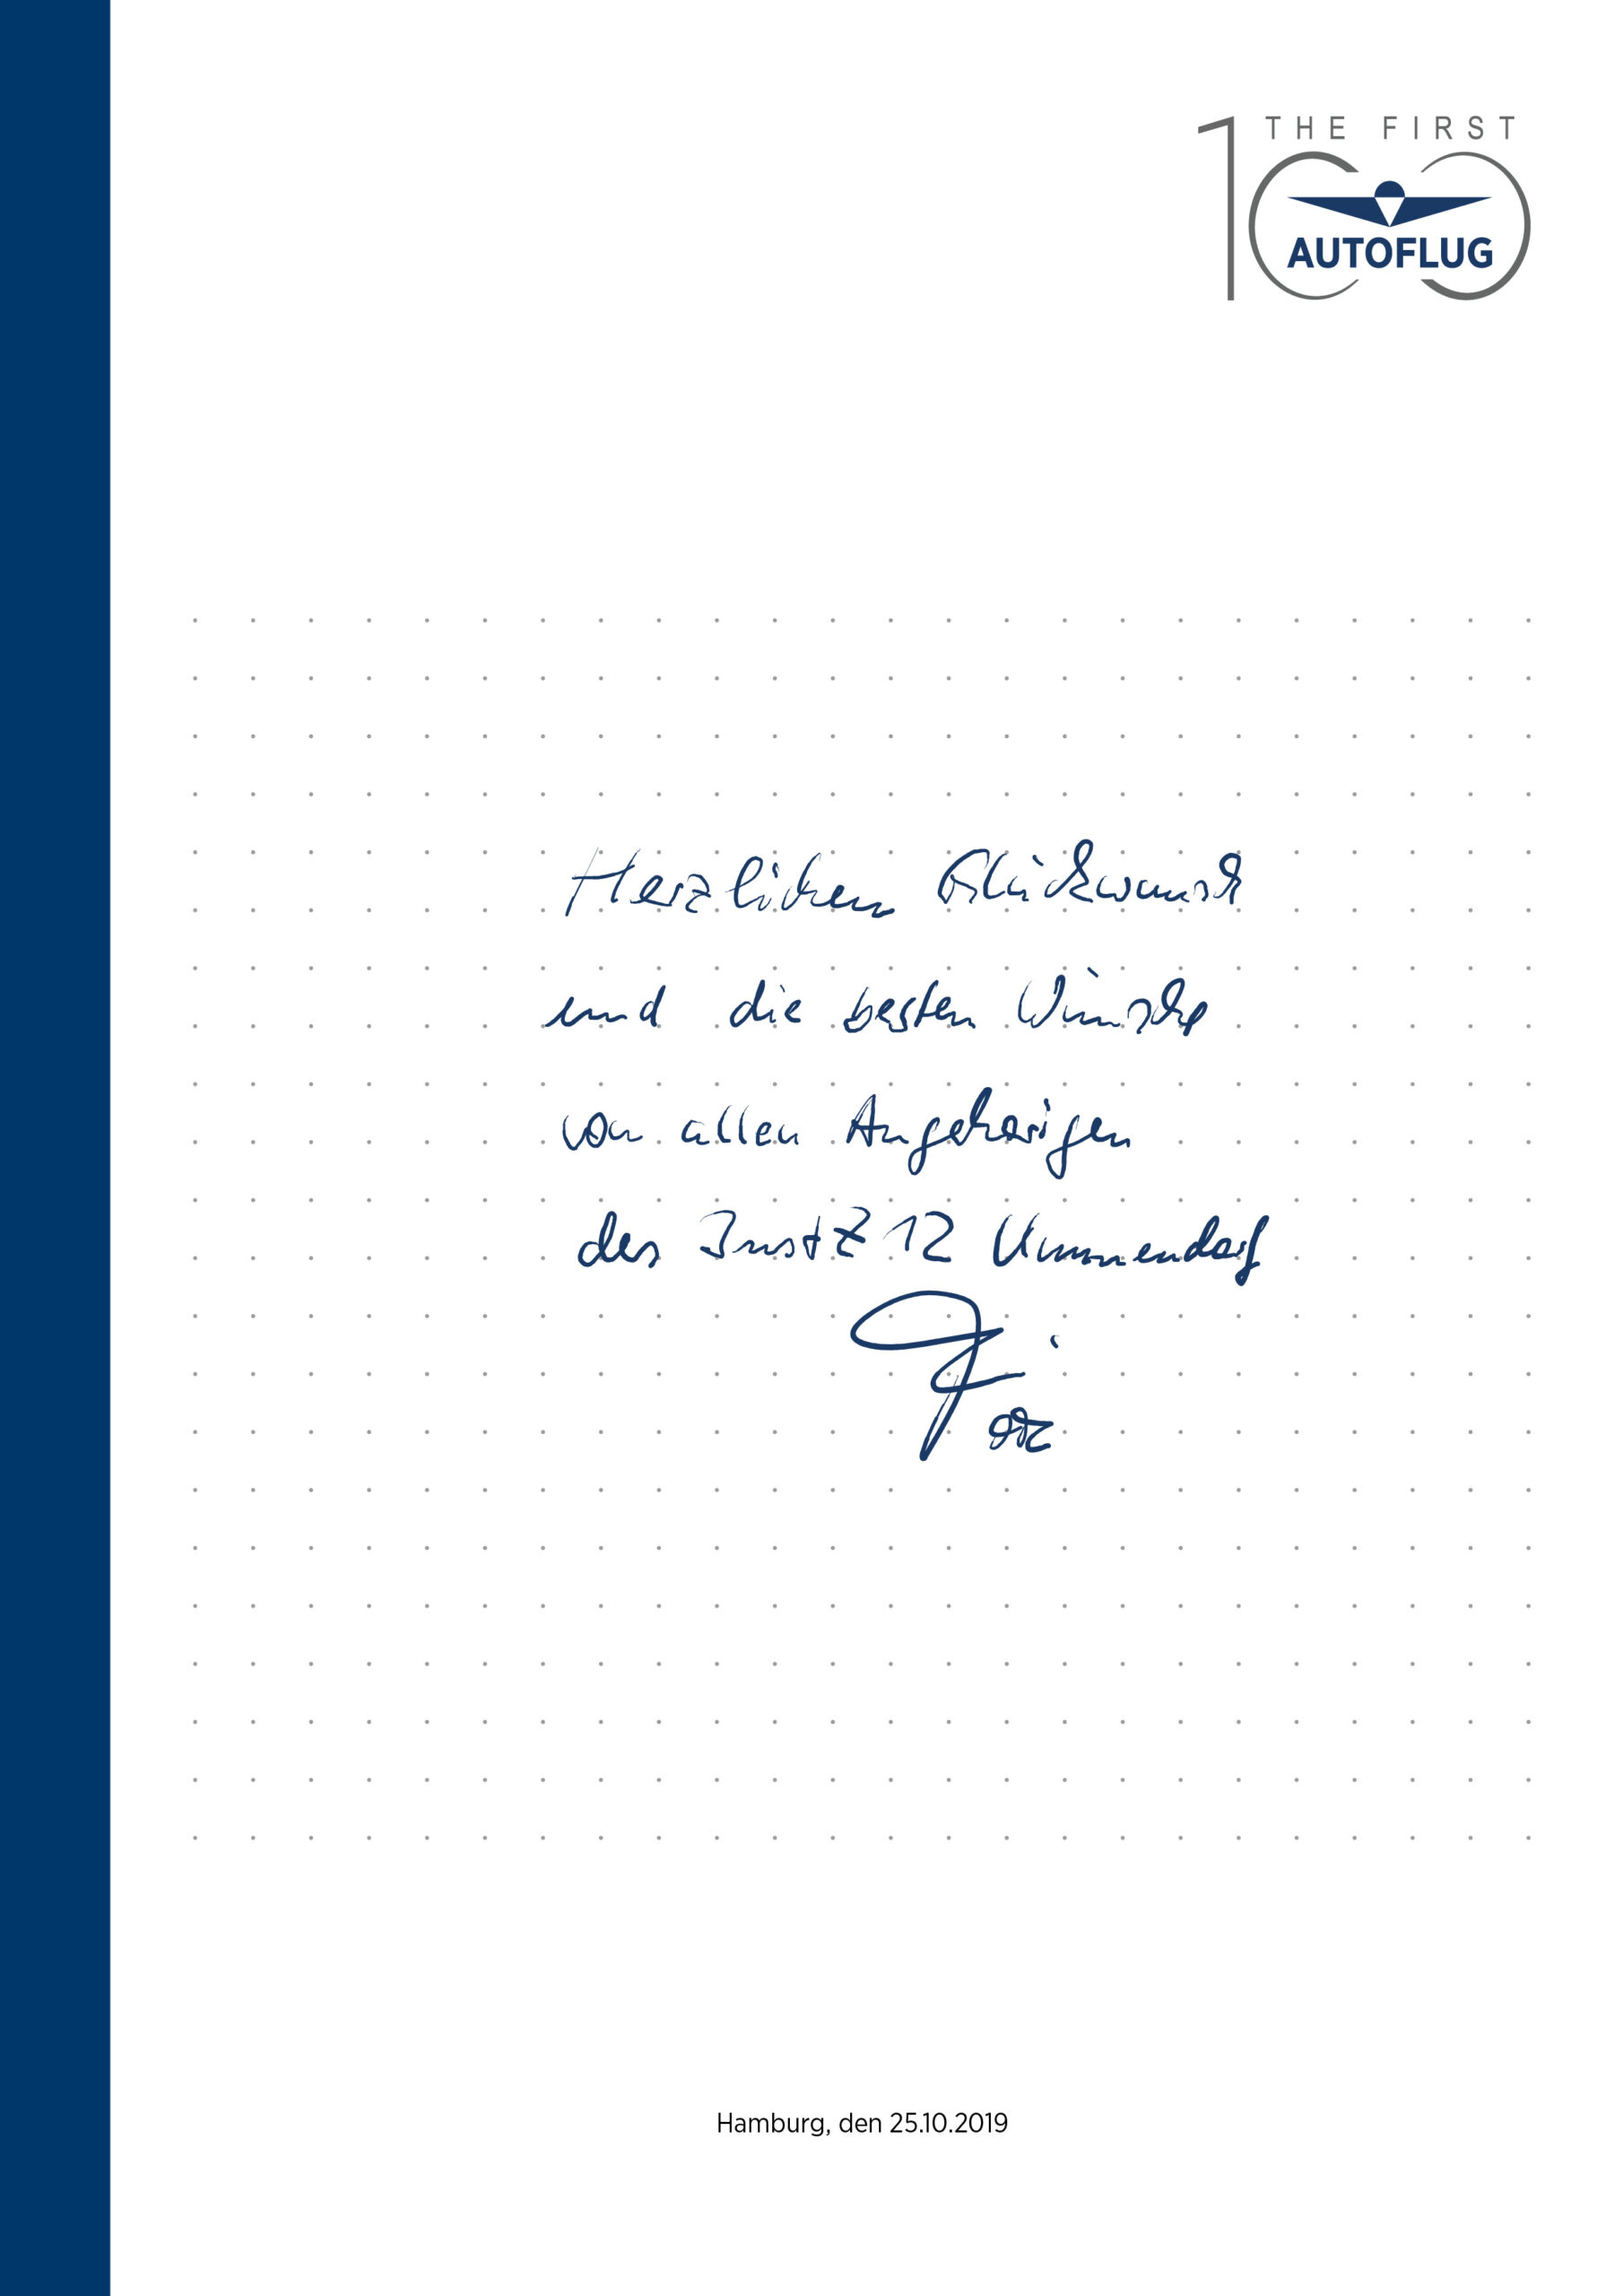 THE FIRST
100
AUTOFLUG
Herzlichen Glückwunsch
und die besten Wünsche
von allen Angehörigen
des InstZ 12 Ummendorf
Hamburg, den 25.10.2019